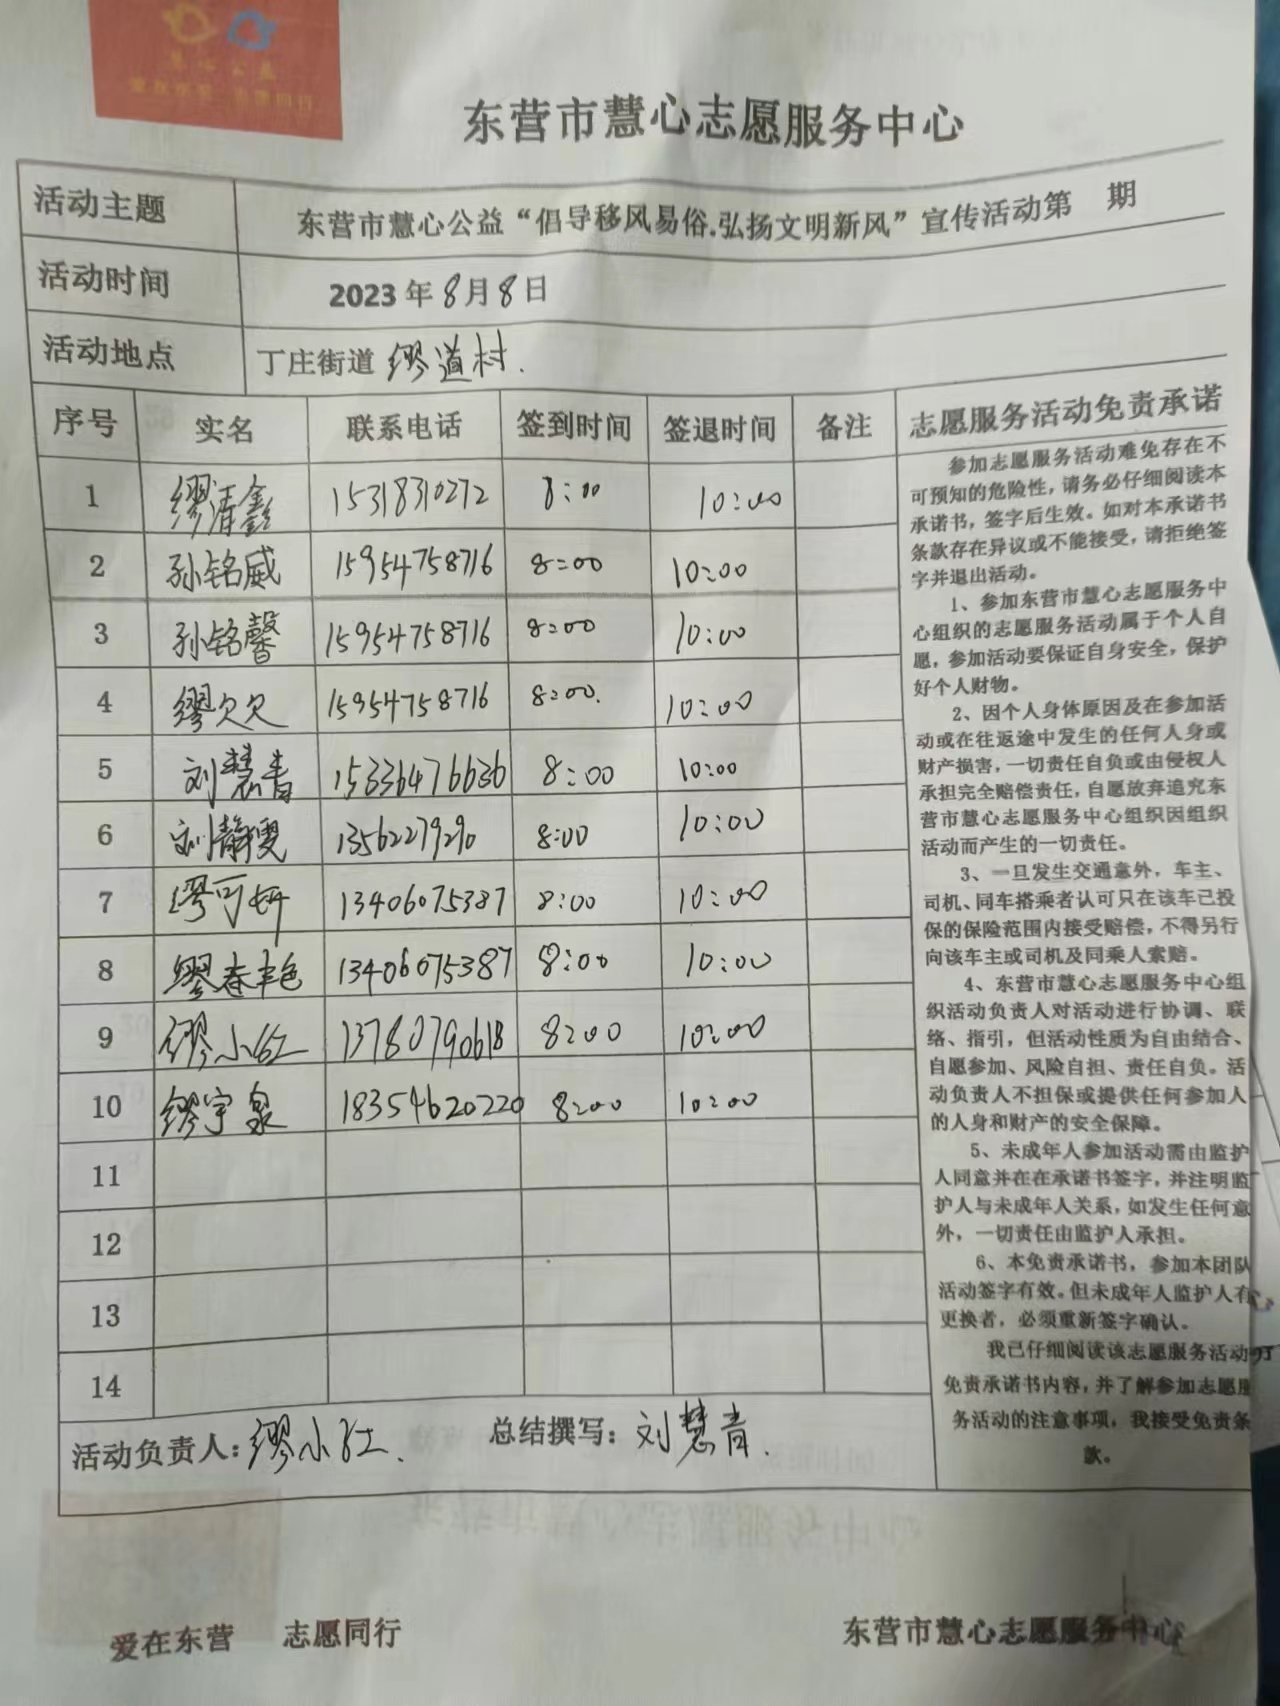 慧心公益
爱在东营 志愿同行
东营市慧心志愿服务中心
活动主题 东营市慧心公益“倡导移风易俗.弘扬文明新风”宣传活动第 期
活动时间 2023年8月8日
活动地点 丁庄街道 缪道村.
序号 实名 联系电话 签到时间 签退时间 备注
1 缪清鑫 15318310272 8:00 10:00
2 孙铭威 15954758716 8:00 10:00
3 孙铭馨 15954758716 8:00 10:00
4 缪欠欠 15954758716 8:00. 10:00
5 刘慧青 15336476636 8:00 10:00
6 刘静雯 13562279290 8:00 10:00
7 缪可妍 13406075387 8:00 10:00
8 缪春艳 13406075387 8:00 10:00
9 缪小红 13780790618 8:00 10:00
10 缪宇泉 18354620220 8:00 10:00
11
12
13
14
活动负责人:缪小红. 总结撰写:刘慧青.
志愿服务活动免责承诺
参加志愿服务活动难免存在不
可预知的危险性，请务必仔细阅读本
承诺书，签字后生效。如对本承诺书
条款存在异议或不能接受，请拒绝签
字并退出活动。
1、参加东营市慧心志愿服务中
心组织的志愿服务活动属于个人自
愿，参加活动要保证自身安全，保护
好个人财物。
2、因个人身体原因及在参加活
动或在往返途中发生的任何人身或
财产损害，一切责任自负或由侵权人
承担完全赔偿责任，自愿放弃追究东
营市慧心志愿服务中心组织因组织
活动而产生的一切责任。
3、一旦发生交通意外，车主、
司机、同车搭乘者认可只在该车已投
保的保险范围内接受赔偿，不得另行
向该车主或司机及同乘人索赔。
4、东营市慧心志愿服务中心组
织活动负责人对活动进行协调、联
络、指引，但活动性质为自由结合、
自愿参加、风险自担、责任自负。活
动负责人不担保或提供任何参加人
的人身和财产的安全保障。
5、未成年人参加活动需由监护
人同意并在在承诺书签字，并注明监
护人与未成年人关系，如发生任何意
外，一切责任由监护人承担。
6、本免责承诺书，参加本团队
活动签字有效。但未成年人监护人有
更换者，必须重新签字确认。
我已仔细阅读该志愿服务活动
免责承诺书内容，并了解参加志愿服
务活动的注意事项，我接受免责条
款。
爱在东营 志愿同行 东营市慧心志愿服务中心